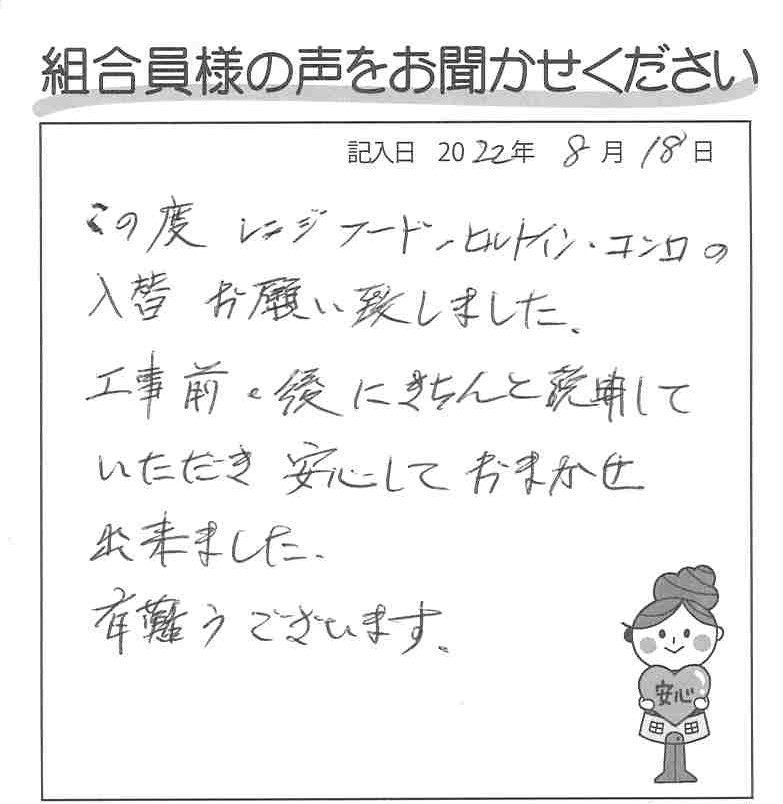 組合員様の声をお聞かせください
記入日 2022年 8月 18日
この度 レンジフード、ビルトイン・コンロの
入替 お願い致しました。
工事前・後にきちんと説明して
いただき 安心しておまかせ
出来ました。
有難うございます。
安心